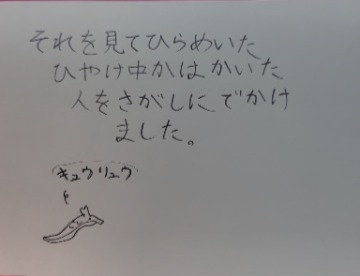 それを見てひらめいた
ひやけ中かはかいた
人をさがしにでかけ
ました。
キュウリュウ